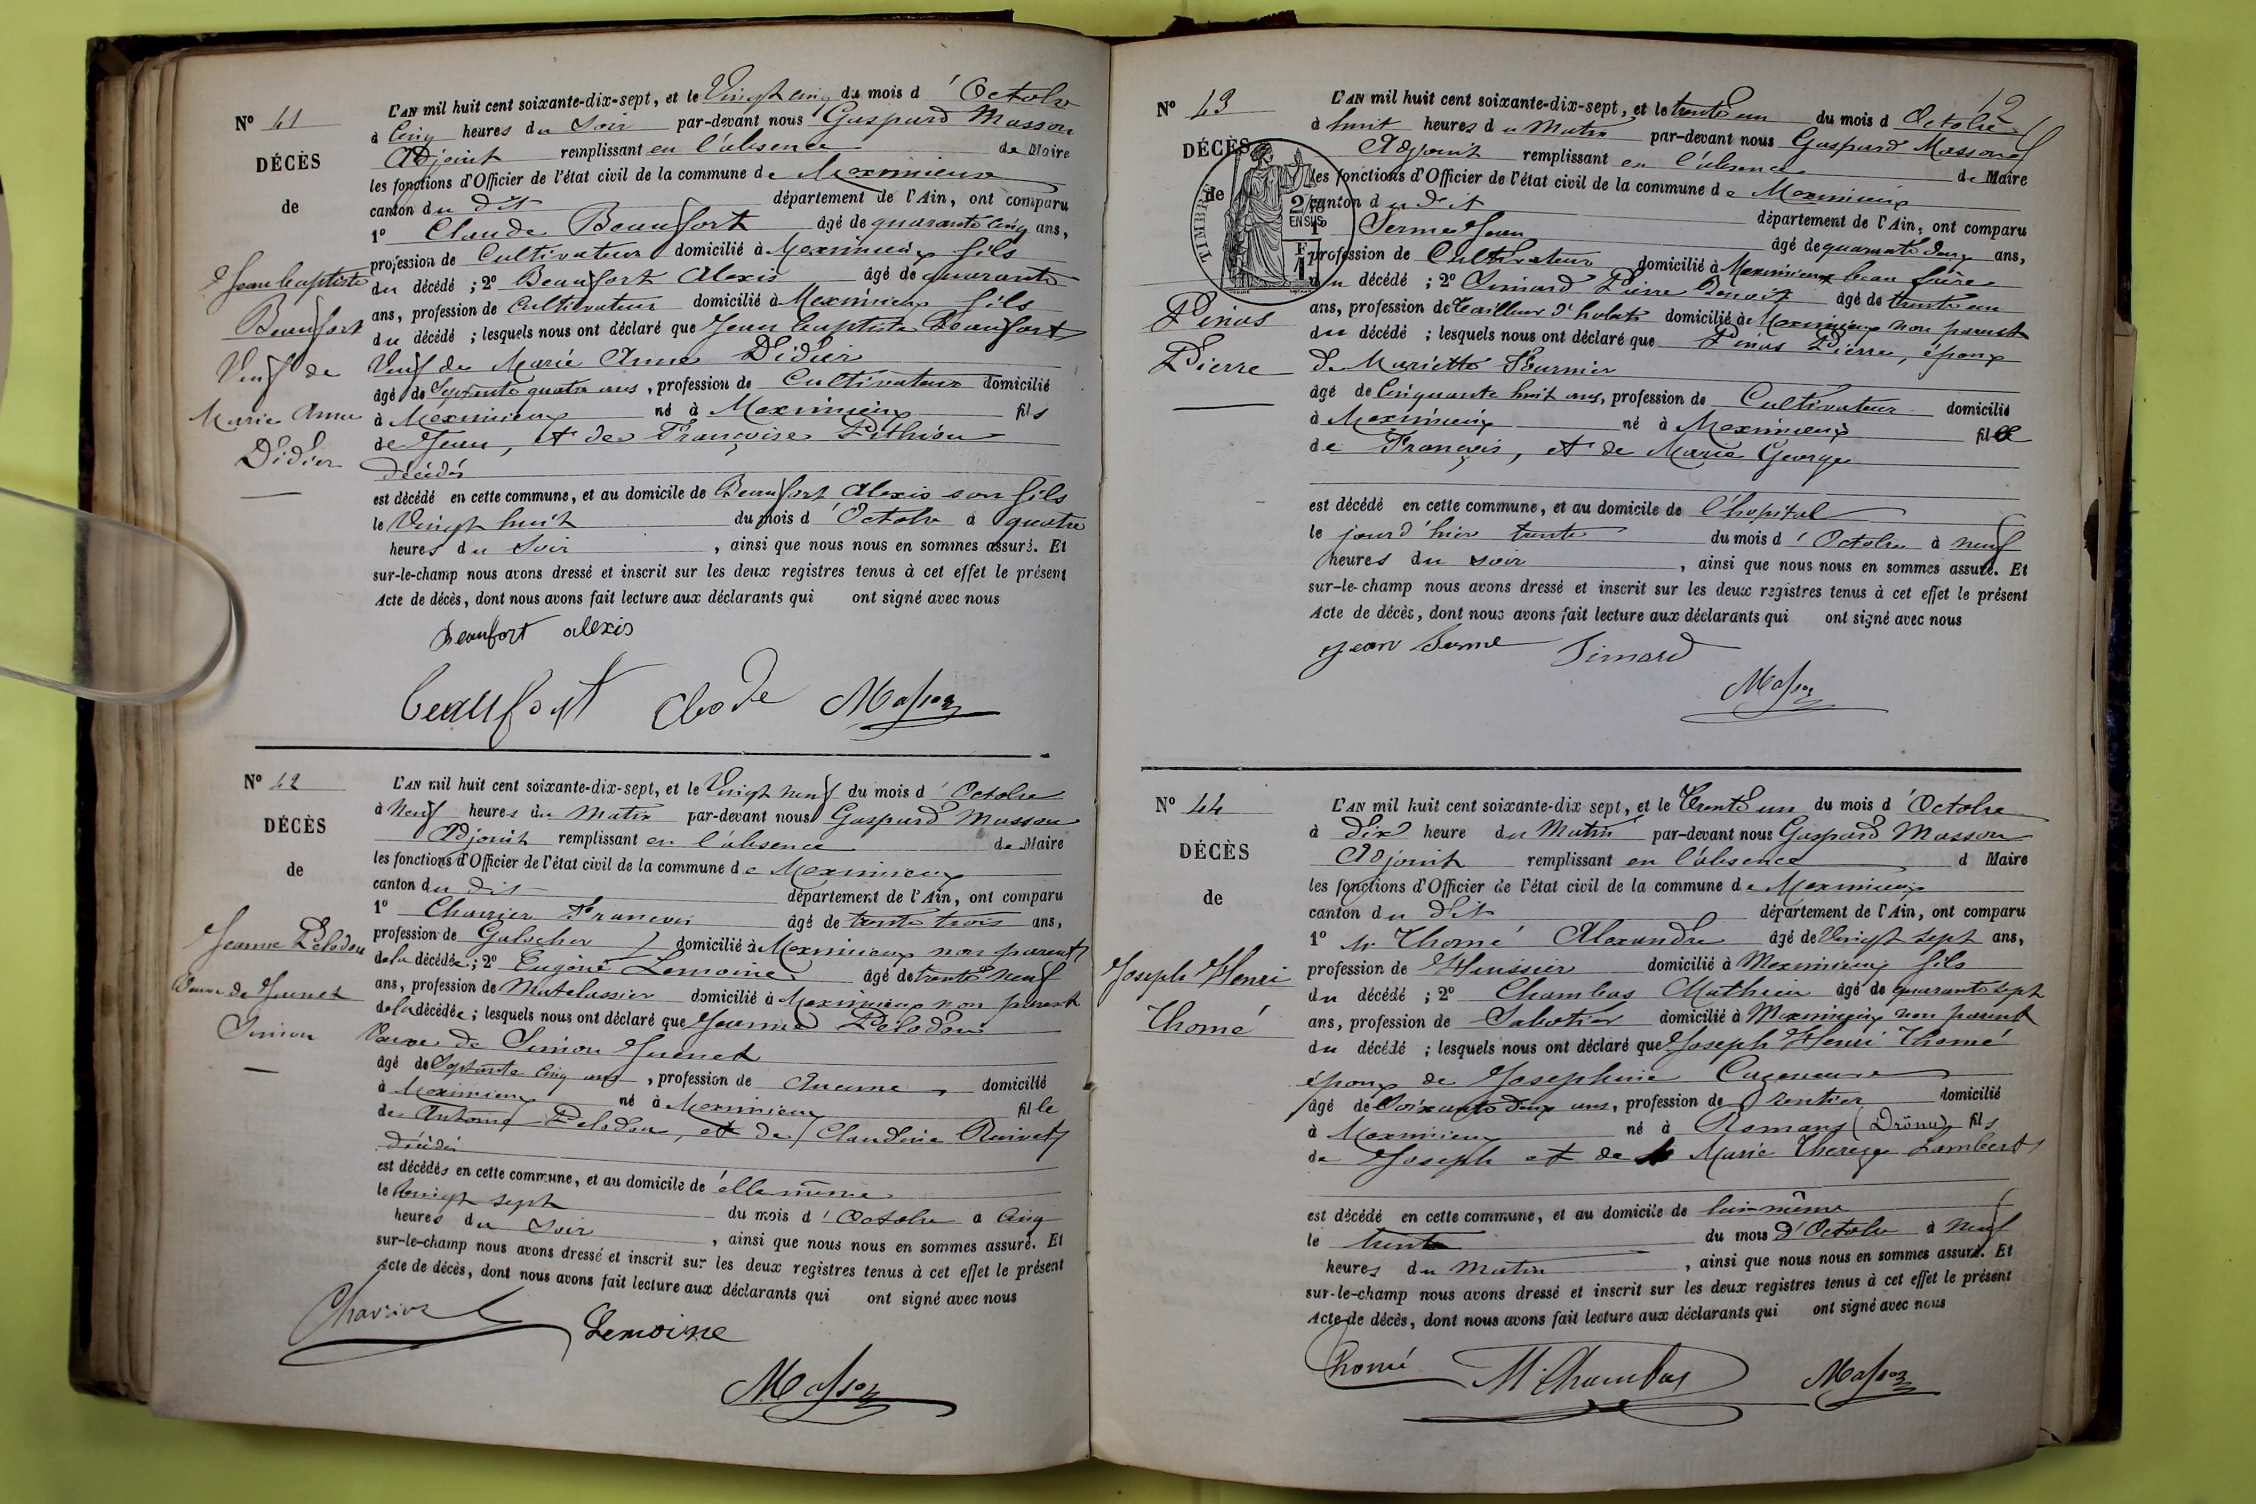 N° 41
DÉCÈS
de
Jean baptiste
Beaufort
Veuf de
Marie Anne
Didier
L'AN mil huit cent soixante-dix-sept, et le Vingt cinq du mois d' Octobre
à Cinq heures du Soir par-devant nous Gaspard Masson
Adjoint remplissant en l'absence de Maire
les fonctions d'Officier de l'état civil de la commune de Meximieux
canton du dit département de l'Ain, ont comparu
1° Claude Beaufort âgé de quarante cinq ans,
profession de Cultivateur domicilié à Meximieux fils
du décédé ; 2° Beaufort Alexis âgé de quarante
ans, profession de Cultivateur domicilié à Meximieux fils
du décédé ; lesquels nous ont déclaré que Jean baptiste Beaufort
Veuf de Marie Anne Didier
âgé de Septante quatre ans, profession de Cultivateur domicilié
à Meximieux né à Meximieux fils
de Jean, et de Françoise Pithiou
décédés
est décédé en cette commune, et au domicile de Beaufort Alexis son fils
le Vingt huit du mois d' Octobre à quatre
heures du Soir , ainsi que nous nous en sommes assuré. Et
sur-le-champ nous avons dressé et inscrit sur les deux registres tenus à cet effet le présent
Acte de décès, dont nous avons fait lecture aux déclarants qui ont signé avec nous
Beaufort alexis
beaufort Masson
N° 42
DÉCÈS
de
Jeanne Pelodou
Veuve de Guenet
Simon
L'AN mil huit cent soixante-dix-sept, et le Vingt neuf du mois d' Octobre
à Neuf heures du Matin par-devant nous Gaspard Masson
Adjoint remplissant en l'absence de Maire
les fonctions d'Officier de l'état civil de la commune de Meximieux
canton du dit département de l'Ain, ont comparu
1° Charrier François âgé de trente trois ans,
profession de Galocher domicilié à Meximieux non parent
de la décédée ; 2° Eugène Lemoine âgé de trente neuf
ans, profession de Matelassier domicilié à Meximieux non parent
de la décédée ; lesquels nous ont déclaré que Jeanne Pélodou
Veuve de Simon Guenet
âgé de Septante cinq ans, profession de Aucune domicilié
à Meximieux né à Meximieux fille
de Antoine Pelodou, et de Claudine Ruivet
décédés
est décédés en cette commune, et au domicile de elle même
le Vingt sept du mois d' Octobre à Cinq
heures du Soir , ainsi que nous nous en sommes assuré. Et
sur-le-champ nous avons dressé et inscrit sur les deux registres tenus à cet effet le présent
Acte de décès, dont nous avons fait lecture aux déclarants qui ont signé avec nous
Charrier Lemoine
Masson
12
N° 43
DÉCÈS
de
TIMBRE
2/10
EN SUS
Pinas
Pierre
L'AN mil huit cent soixante-dix-sept, et le trente un du mois d Octobre
à huit heures du Matin par-devant nous Gaspard Masson
Adjoint remplissant en l'absence de Maire
les fonctions d'Officier de l'état civil de la commune de Meximieux
canton du dit département de l'Ain, ont comparu
1° Serme Jean âgé de quarante deux ans,
profession de Cultivateur domicilié à Meximieux beau frère
du décédé ; 2° Simard Pierre Benoit âgé de trente un
ans, profession de Tailleur d'habits domicilié à Meximieux non parent
du décédé ; lesquels nous ont déclaré que Pinas Pierre, époux
de Mariette Fournier
âgé de Cinquante huit ans, profession de Cultivateur domicilié
à Meximieux né à Meximieux fil
de François, et de Marie George
est décédé en cette commune, et au domicile de l'hopital
le jourd'hier trente du mois d' Octobre à neuf
heures du soir , ainsi que nous nous en sommes assuré. Et
sur-le-champ nous avons dressé et inscrit sur les deux registres tenus à cet effet le présent
Acte de décès, dont nous avons fait lecture aux déclarants qui ont signé avec nous
jean Serme Simard
Masson
N° 44
DÉCÈS
de
Joseph Henri
Thomé
L'AN mil huit cent soixante-dix sept, et le Trente un du mois d' Octobre
à Dix heure du Matin par-devant nous Gaspard Masson
Adjoint remplissant en l'absence d Maire
les fonctions d'Officier de l'état civil de la commune de Meximieux
canton du dit département de l'Ain, ont comparu
1° Mr Thomé Alexandre âgé de Vingt sept ans,
profession de Huissier domicilié à Meximieux fils
du décédé ; 2° Chambas Mathieu âgé de quarante sept
ans, profession de Sabotier domicilié à Meximieux non parent
du décédé ; lesquels nous ont déclaré que Joseph Henri Thomé
époux de Josephine Cazeneuve
âgé de Soixante deux ans, profession de rentier domicilié
à Meximieux né à Romans (Drôme) fils
de Joseph et de Marie Thereze Lambert
est décédé en cette commune, et au domicile de lui même
le trente du mois d'Octobre à Neuf
heures du Matin , ainsi que nous nous en sommes assuré. Et
sur-le-champ nous avons dressé et inscrit sur les deux registres tenus à cet effet le présent
Acte de décès, dont nous avons fait lecture aux déclarants qui ont signé avec nous
Thomé M. Chambas Masson